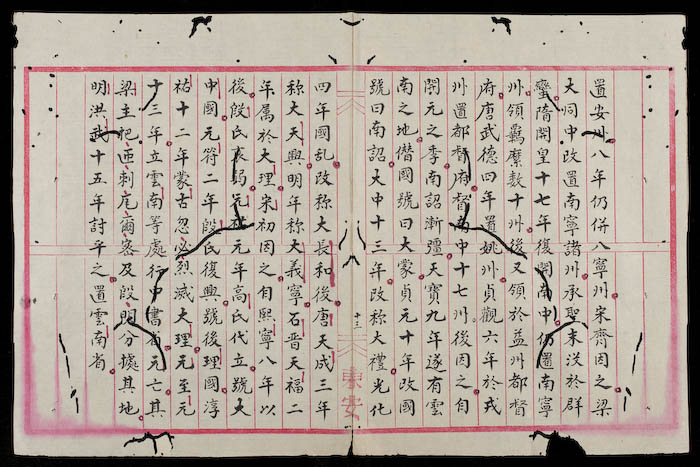 置安州八年仍併入寧州宋齊因之梁
大同中改置南寧諸州承聖末没於群
蠻隋開皇十七年復開南中仍置南寧
州領羈縻数十州後又領於益州都督
府唐武德四年置姚州貞觀六年於戎
州置都督府督南中十七州後因之自
開元之季南詔漸彊天寳九年遂有雲
南之地僭國號曰大蒙貞元十年改國
號曰南詔大中十三年改称大禮光化
十三
東安
四年國乱改称大長和後唐天成三年
称大天興明年称大義寧石晋天福二
年属於大理宋初因之自熙寧八年以
後段氏衰弱元 元年高氏代立號大
中國元符二年段氏復興號後理國淳
祐十二年蒙古忽必烈滅大理元至元
十三年立雲南等處行中書省元亡其
梁王把匝刺瓦爾密及段明分據其地
明洪武十五年討平之置雲南省